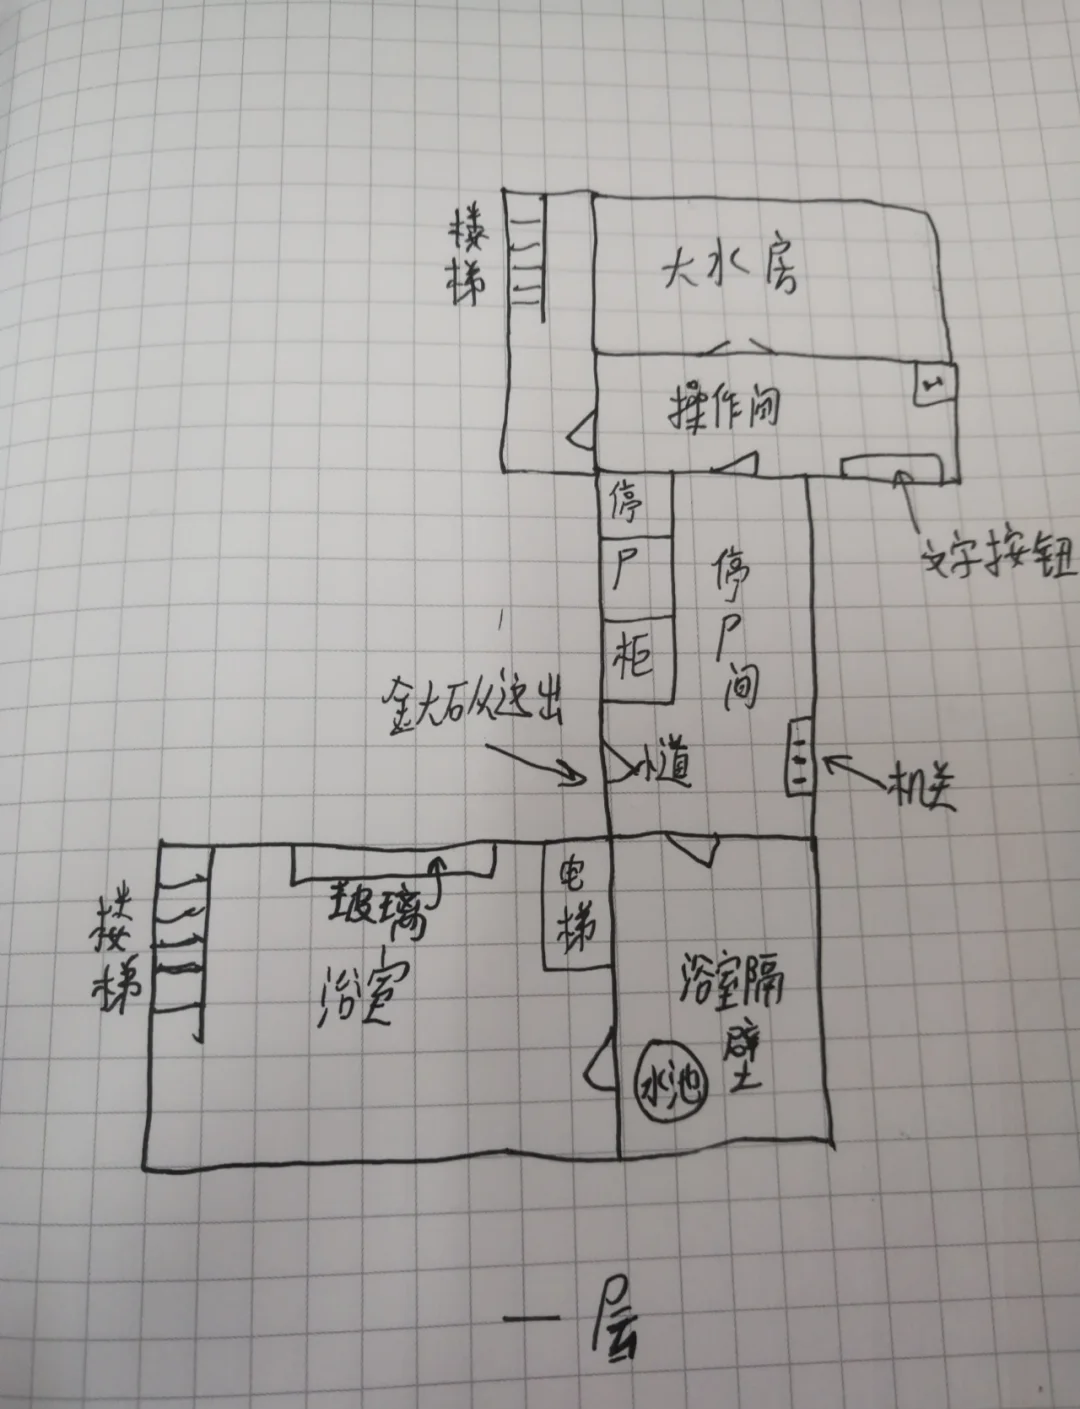 楼梯
大水房
操作间
文字按钮
停尸柜
停尸间
金大石从这出
小道
机关
电梯
玻璃
楼梯
浴室
浴室隔壁
水池
一层